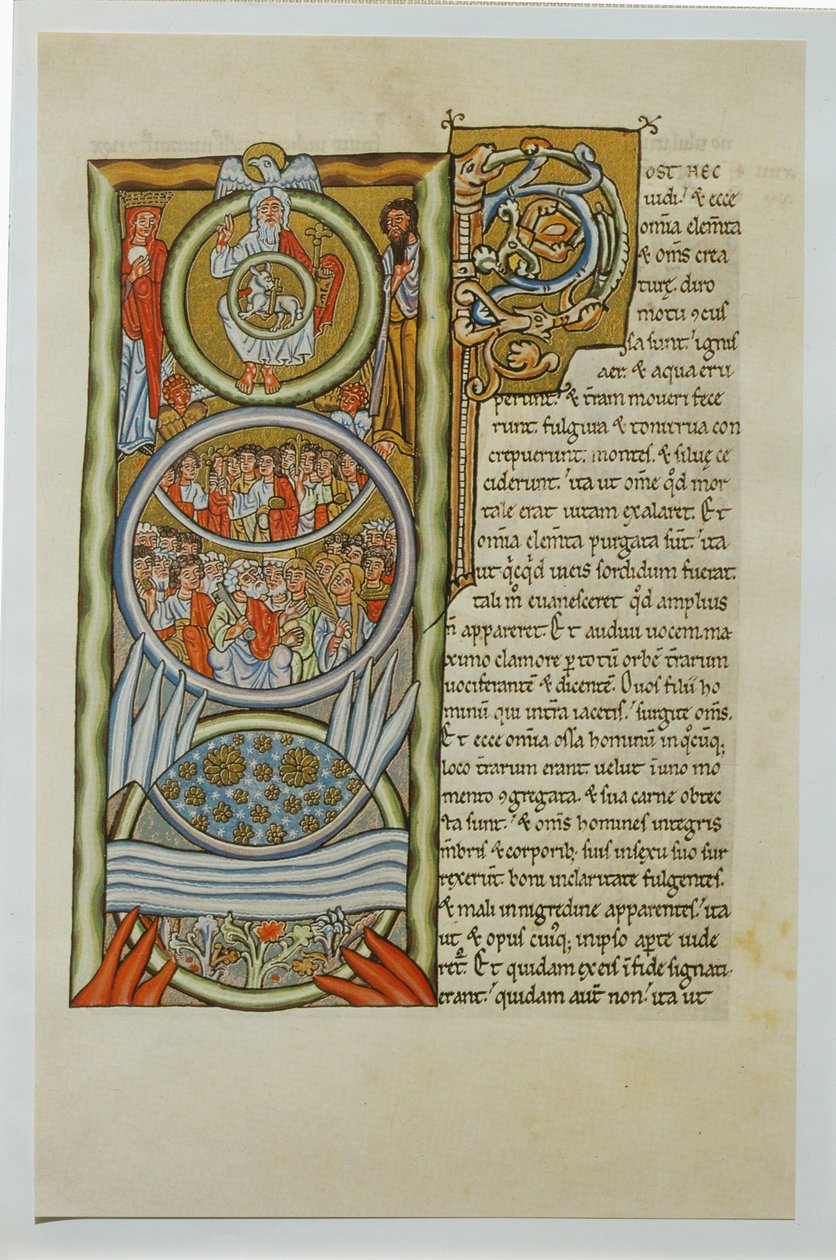 POST HEC
uidi. & ecce
om̄ia elem̄ta
& om̄s crea
turę. diro
motu ꝯcus
sa sunt. ignis
aer. & aqua eru
perunt. & t̄ram moueri fece
runt. fulgura & tonitrua con
crepuerunt. montes. & siluę ce
ciderunt. ita ut om̄e qd̄ mor
tale erat uitam exalaret. Et
om̄ia elem̄ta purgata sūt. ita
ut qͥcqͥd in eis sordidum fuerat.
tali m̊ euanesceret qd̄ amplius
n̄ appareret. Et audiui uocem ma
ximo clamore ꝑ totū orbē t̄rarum
uociferantē & dicentē. O uos filii ho
minū qui in t̄ra iacetis. surgite om̄s.
Et ecce om̄ia ossa hominū in qͦcūq;
loco t̄rarum erant uelut ī uno mo
mento ꝯgregata. & sua carne obtec
ta sunt. & om̄s homines integris
m̄bris & corporib; suis in sexu suo sur
rexerūt. boni in claritate fulgentes.
& mali in nigredine apparentes. ita
ut & opus cuiꝰq; in ipso aꝑte uide
ret̃. Et quidam ex eis ī fide signati
erant. quidam aut̄ non. ita ut